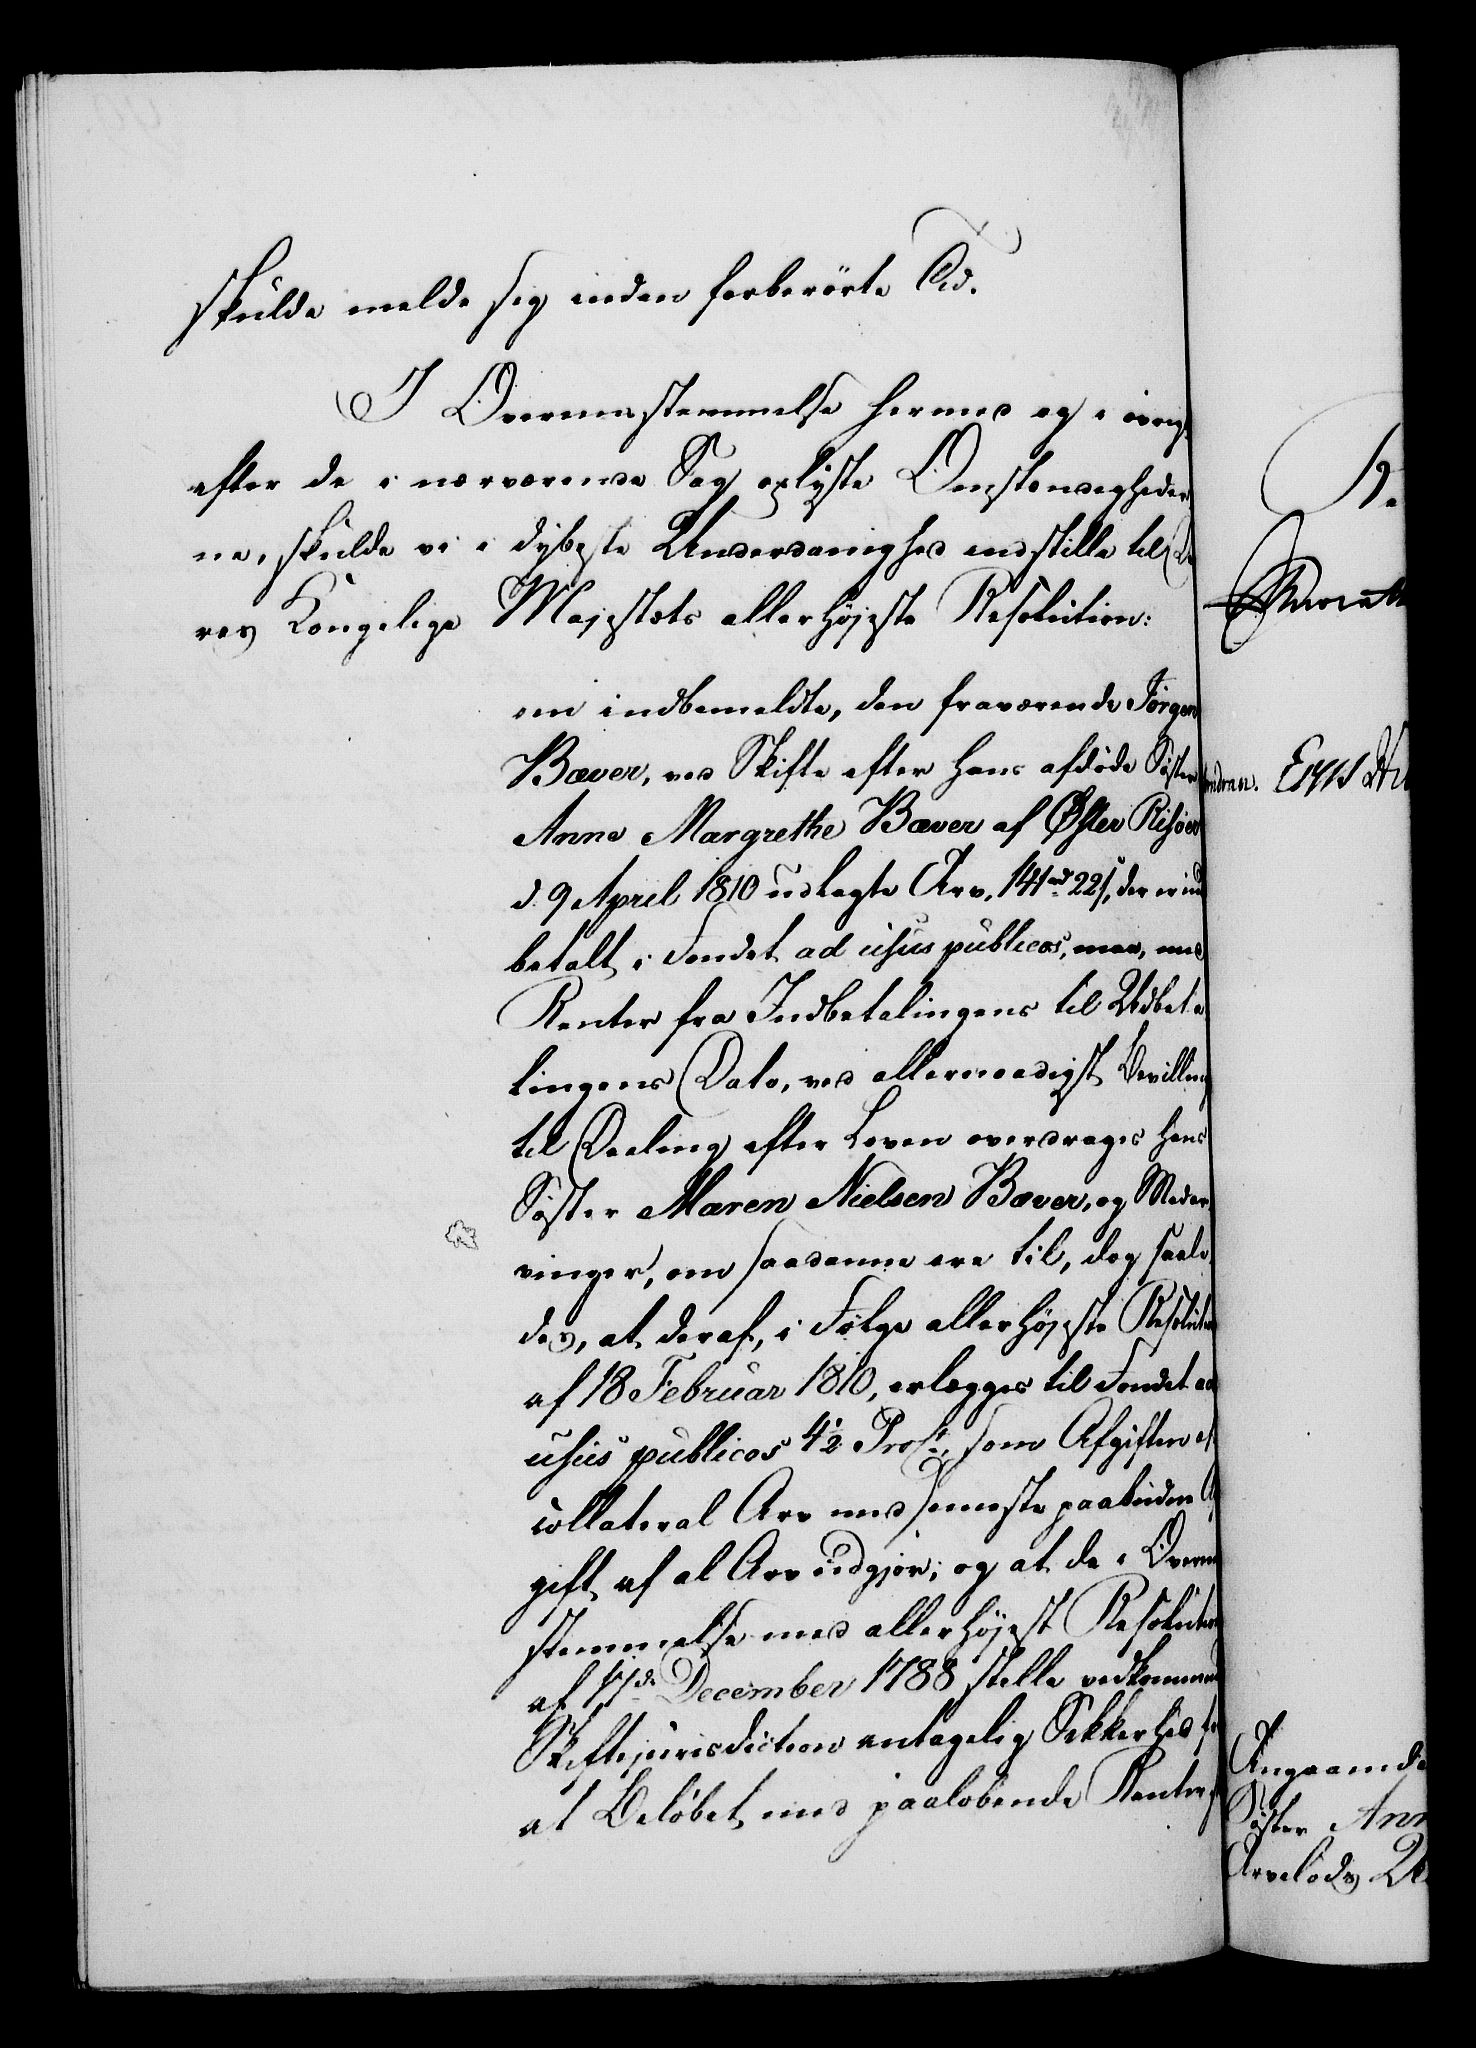 skulde melde sig inden forberörte Tid.
I Overensstemmelse hermed og i övrigt
efter de i nærværende Sag oplyste Omstændigheder
ne, skulde vi i dybeste Underdanighed indstille til De
res Kongelige Majestæts allerhöjeste Resolution:
om indbemeldte, den fraværende Jörgen
Bæver, ved Skifte efter hans afdöde Söster
Anne Margrethe Bæver af Öster Risöer
d. 9 April 1810 udlagte Arv, 141 rd 22 s, der er ind
betalt i Fondet ad usus publicos, maa, med
Renter fra Indbetalingens til Udbeta
lingens Dato, ved allernaadigst Bevilling
til Deeling efter Loven overdrages hans
Söster Maren Nielsen Bæver, og Medar
vinger, om saadanne ere til, dog saale
des, at deraf, i Fölge allerhöjeste Resolution
af 18 Februar 1810, erlægges til Fondet ad
usus publicos 4½ Proct, som Afgiften af
collateral Arv med seneste paabudne Af
gift af al Arv udgjör; og at de i Overens
stemmelse med allerhöjest Resolution
af 17de December 1788 stille vedkommende
Skiftejurisdiction antagelig Sikkerhed for
at Belöbet med paalöbende Renter
Angaaende
Söster Ann
Arvelods